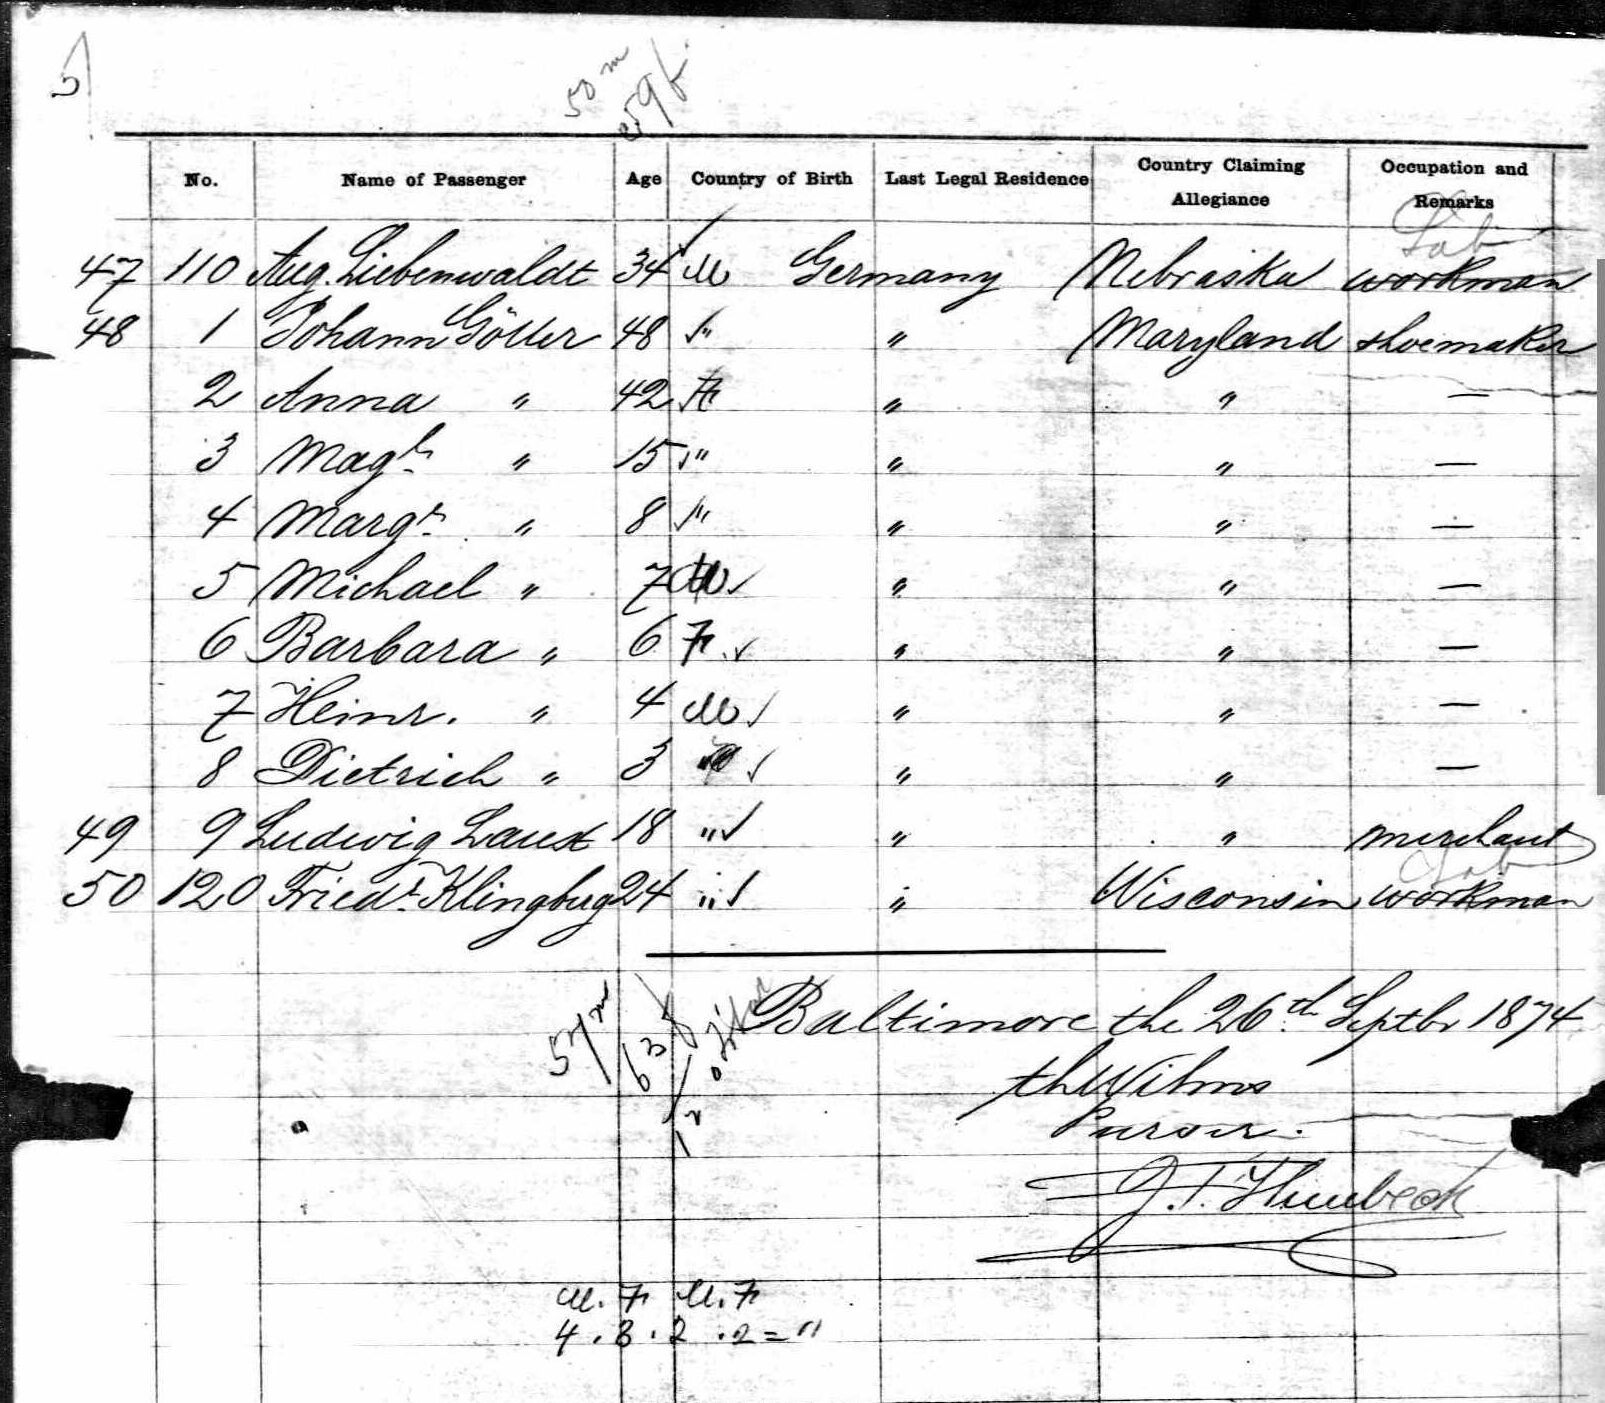 5
50 m
59 f
No. Name of Passenger Age Country of Birth Last Legal Residence Country Claiming Allegiance Occupation and Remarks
Lab
47 110 Aug. Liebenwaldt 34 M Germany Nebraska workman
48 1 Johann Göller 48 " " Maryland shoemaker
2 Anna " 42 F " " —
3 Magh. " 15 " " " —
4 Margr. " 8 " " " —
5 Michael " 7 M " " —
6 Barbara " 6 F " " —
7 Heinr. " 4 M " " —
8 Dietrich " 3 " " —
49 9 Ludwig Laux 18 " " " merchant
Lab
50 120 Friedr. Klingberg 24 " " Wisconsin workman
Baltimore the 26th Septbr 1874
57 m
63 f
th Wilms
Purser.
12
M. F M. F
4 . 3 . 2 . 2 = "